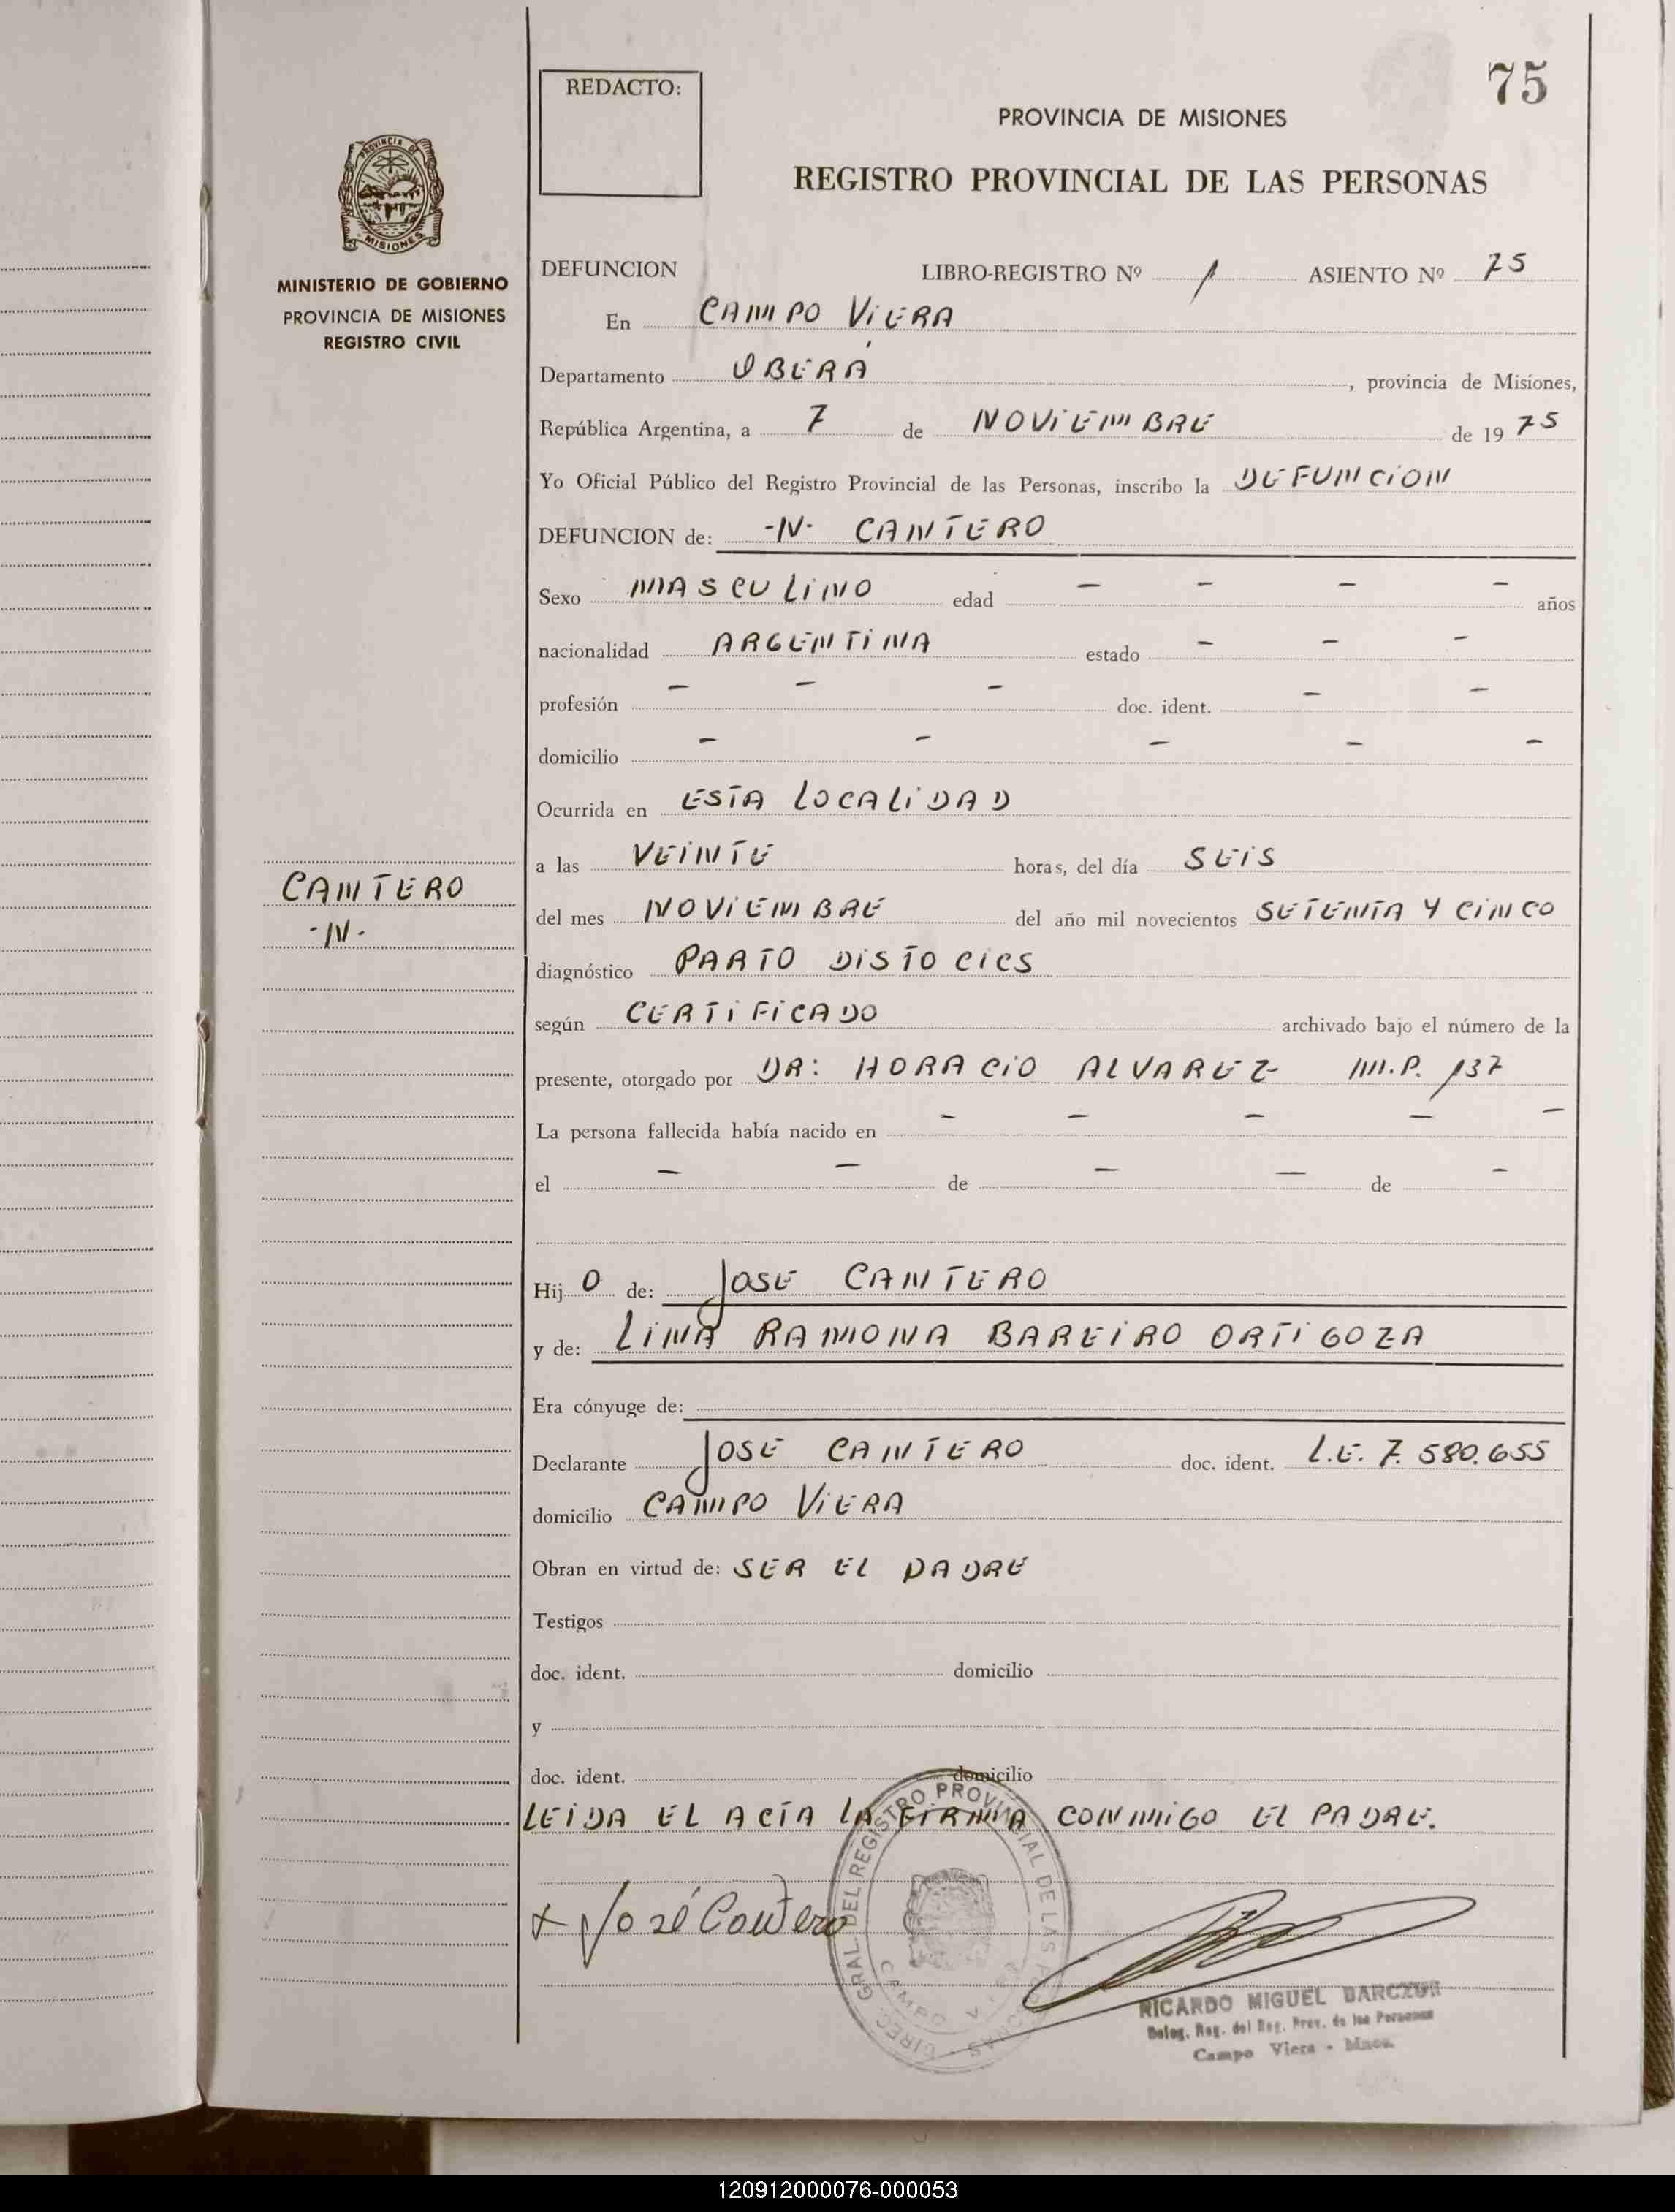 75
REDACTO:
PROVINCIA DE MISIONES
REGISTRO PROVINCIAL DE LAS PERSONAS
PROVINCIA DE
MISIONES
MINISTERIO DE GOBIERNO
PROVINCIA DE MISIONES
REGISTRO CIVIL
DEFUNCION LIBRO-REGISTRO Nº 1 ASIENTO Nº 75
En CAMPO VIERA
Departamento OBERÁ, provincia de Misiones,
República Argentina, a 7 de NOVIEMBRE de 19 75
Yo Oficial Público del Registro Provincial de las Personas, inscribo la DEFUNCION
DEFUNCION de: -N- CANTERO
Sexo MASCULINO edad - - - - años
nacionalidad ARGENTINA estado - - -
profesión - - - doc. ident. - -
domicilio - - - - -
Ocurrida en ESTA LOCALIDAD
a las VEINTE horas, del día SEIS
CANTERO
-N-
del mes NOVIEMBRE del año mil novecientos SETENTA Y CINCO
diagnóstico PARTO DISTOCICS
según CERTIFICADO archivado bajo el número de la
presente, otorgado por DR: HORACIO ALVAREZ M.P. 137
La persona fallecida había nacido en - - - - -
el - - de - - de -
Hij O de: JOSE CANTERO
y de: LINA RAMONA BAREIRO ORTIGOZA
Era cónyuge de:
Declarante JOSE CANTERO doc. ident. L.E. 7.580.655
domicilio CAMPO VIERA
Obran en virtud de: SER EL PADRE
Testigos
doc. ident. domicilio
y
doc. ident. domicilio
LEIDA EL ACTA LA FIRMA CONMIGO EL PADRE.
+ José Cantero
DIREC. GRAL. DEL REGISTRO PROVINCIAL DE LAS PERSONAS
CAMPO VIERA
RICARDO MIGUEL BARCZUK
Deleg. Reg. del Reg. Prov. de las Personas
Campo Viera - Mnes.
120912000076-000053